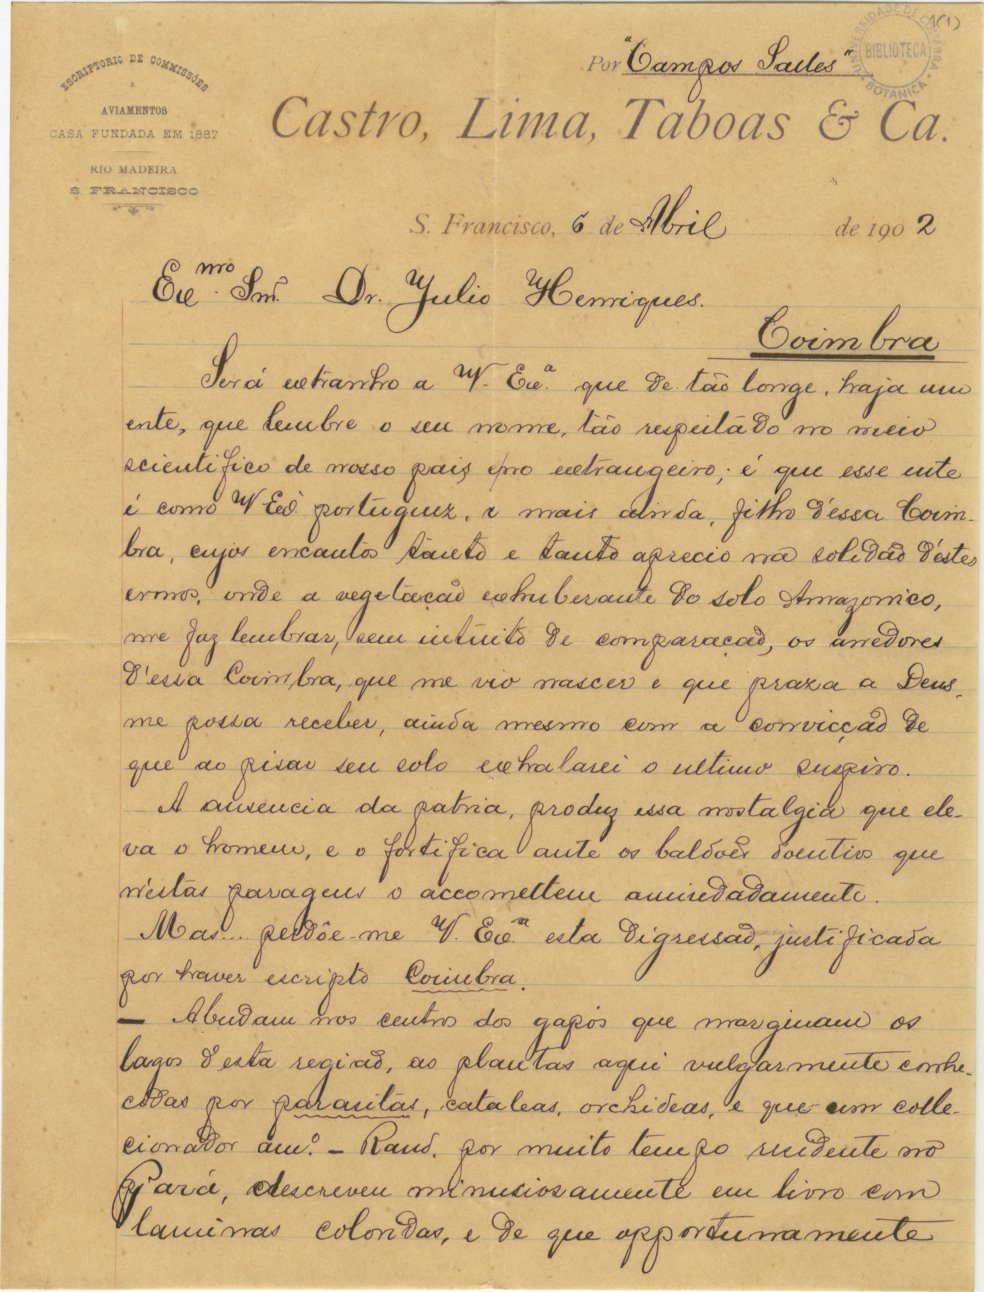 1(1)
UNIVERSIDADE DE COIMBRA
BIBLIOTECA
BOTANICA
Por "Campos Salles"
ESCRIPTORIO DE COMMISSÕES
E
AVIAMENTOS
CASA FUNDADA EM 1887
RIO MADEIRA
S. FRANCISCO
Castro, Lima, Taboas & Ca.
S. Francisco, 6 de Abril de 1902
Exmo. Snr. Dr. Julio Henriques.
Coimbra
Será extranho a V. Exa. que de tão longe, haja um
ente, que lembre o seu nome, tão respeitado no meio
scientifico de nosso pais, e no extrangeiro; é que esse ente
é como V Exa portuguez, e mais ainda, filho d'essa Coim-
bra, cujos encantos tanto e tanto aprecio na solidão d'estes
ermos, onde a vegetação exhuberante do solo Amazonico,
me faz lembrar, sem intuito de comparação, os arredores
d'essa Coimbra, que me vio nascer e que praza a Deus,
me possa receber, ainda mesmo com a convicção de
que ao pisar seu solo exhalarei o ultimo suspiro.
A ausencia da patria, produz essa nostalgia que ele-
va o homem, e o fortifica ante os baldões doentios que
n'estas paragens o accomettem amiudadamente.
Mas... perdôe-me V. Exa. esta digressão, justificada
por haver escripto Coimbra.
— Abundam nos centros dos gapós que marginam os
lagos d'esta região, as plantas aqui vulgarmente conhe-
cidas por parasitas, cataleas, orchideas, e que um colle-
cionador amo. - Rand, por muito tempo residente no
Pará, descreveu minuciosamente em livro com
laminas coloridas, e de que opportunamente